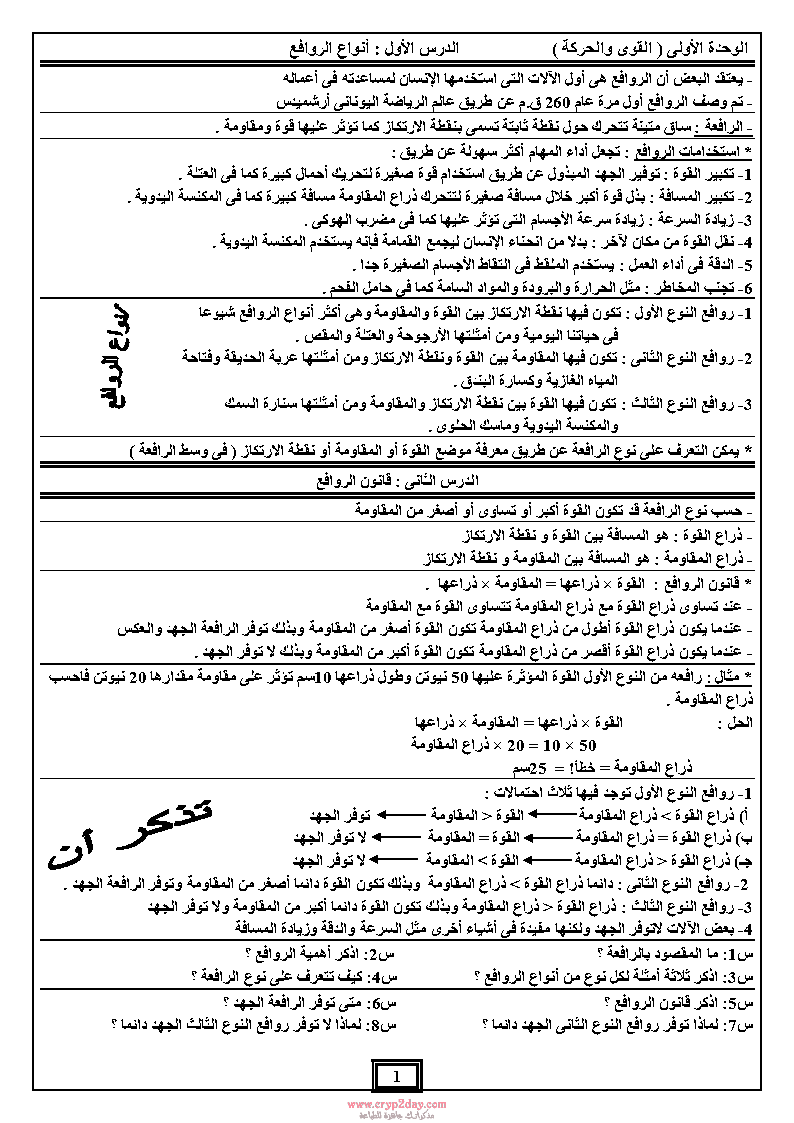 الوحدة الأولى ( القوى والحركة ) الدرس الأول : أنواع الروافع
- يعتقد البعض أن الروافع هى أول الآلات التى استخدمها الإنسان لمساعدته فى أعماله
- تم وصف الروافع أول مرة عام 260 ق.م عن طريق عالم الرياضة اليونانى أرشميدس
- الرافعة : ساق متينة تتحرك حول نقطة ثابتة تسمى بنقطة الارتكاز كما تؤثر عليها قوة ومقاومة .
* استخدامات الروافع : تجعل أداء المهام أكثر سهولة عن طريق :
1- تكبير القوة : توفير الجهد المبذول عن طريق استخدام قوة صغيرة لتحريك أحمال كبيرة كما فى العتلة .
2- تكبير المسافة : بذل قوة أكبر خلال مسافة صغيرة لتتحرك ذراع المقاومة مسافة كبيرة كما فى المكنسة اليدوية .
3- زيادة السرعة : زيادة سرعة الأجسام التى تؤثر عليها كما فى مضرب الهوكى .
4- نقل القوة من مكان لآخر : بدلا من انحناء الإنسان ليجمع القمامة فإنه يستخدم المكنسة اليدوية .
5- الدقة فى أداء العمل : يستخدم الملقط فى التقاط الأجسام الصغيرة جدا .
6- تجنب المخاطر : مثل الحرارة والبرودة والمواد السامة كما فى حامل الفحم .
أنواع الروافع
1- روافع النوع الأول : تكون فيها نقطة الارتكاز بين القوة والمقاومة وهى أكثر أنواع الروافع شيوعا
فى حياتنا اليومية ومن أمثلتها الأرجوحة والعتلة والمقص .
2- روافع النوع الثانى : تكون فيها المقاومة بين القوة ونقطة الارتكاز ومن أمثلتها عربة الحديقة وفتاحة
المياه الغازية وكسارة البندق .
3- روافع النوع الثالث : تكون فيها القوة بين نقطة الارتكاز والمقاومة ومن أمثلتها سنارة السمك
والمكنسة اليدوية وماسك الحلوى .
* يمكن التعرف على نوع الرافعة عن طريق معرفة موضع القوة أو المقاومة أو نقطة الارتكاز ( فى وسط الرافعة )
الدرس الثانى : قانون الروافع
- حسب نوع الرافعة قد تكون القوة أكبر أو تساوى أو أصغر من المقاومة
- ذراع القوة : هو المسافة بين القوة و نقطة الارتكاز
- ذراع المقاومة : هو المسافة بين المقاومة و نقطة الارتكاز
* قانون الروافع : القوة × ذراعها = المقاومة × ذراعها .
- عند تساوى ذراع القوة مع ذراع المقاومة تتساوى القوة مع المقاومة
- عندما يكون ذراع القوة أطول من ذراع المقاومة تكون القوة أصغر من المقاومة وبذلك توفر الرافعة الجهد والعكس
- عندما يكون ذراع القوة أقصر من ذراع المقاومة تكون القوة أكبر من المقاومة وبذلك لا توفر الجهد .
* مثال : رافعه من النوع الأول القوة المؤثرة عليها 50 نيوتن وطول ذراعها 10سم تؤثر على مقاومة مقدارها 20 نيوتن فاحسب
ذراع المقاومة .
الحل : القوة × ذراعها = المقاومة × ذراعها
50 × 10 = 20 × ذراع المقاومة
ذراع المقاومة = خطأ! = 25سم
تذكر أن
1- روافع النوع الأول توجد فيها ثلاث احتمالات :
أ) ذراع القوة > ذراع المقاومة ← القوة < المقاومة ← توفر الجهد
ب) ذراع القوة = ذراع المقاومة ← القوة = المقاومة ← لا توفر الجهد
جـ) ذراع القوة < ذراع المقاومة ← القوة > المقاومة ← لا توفر الجهد
2- روافع النوع الثانى : دائما ذراع القوة > ذراع المقاومة وبذلك تكون القوة دائما أصغر من المقاومة وتوفر الرافعة الجهد .
3- روافع النوع الثالث : ذراع القوة < ذراع المقاومة وبذلك تكون القوة دائما أكبر من المقاومة ولا توفر الجهد
4- بعض الآلات لاتوفر الجهد ولكنها مفيدة فى أشياء أخرى مثل السرعة والدقة وزيادة المسافة
س1: ما المقصود بالرافعة ؟ س2: اذكر أهمية الروافع ؟
س3: اذكر ثلاثة أمثلة لكل نوع من أنواع الروافع ؟ س4: كيف تتعرف على نوع الرافعة ؟
س5: اذكر قانون الروافع ؟ س6: متى توفر الرافعة الجهد ؟
س7: لماذا توفر روافع النوع الثانى الجهد دائما ؟ س8: لماذا لا توفر روافع النوع الثالث الجهد دائما ؟
1
www.cryp2day.com
مذكرات جاهزة للطباعة